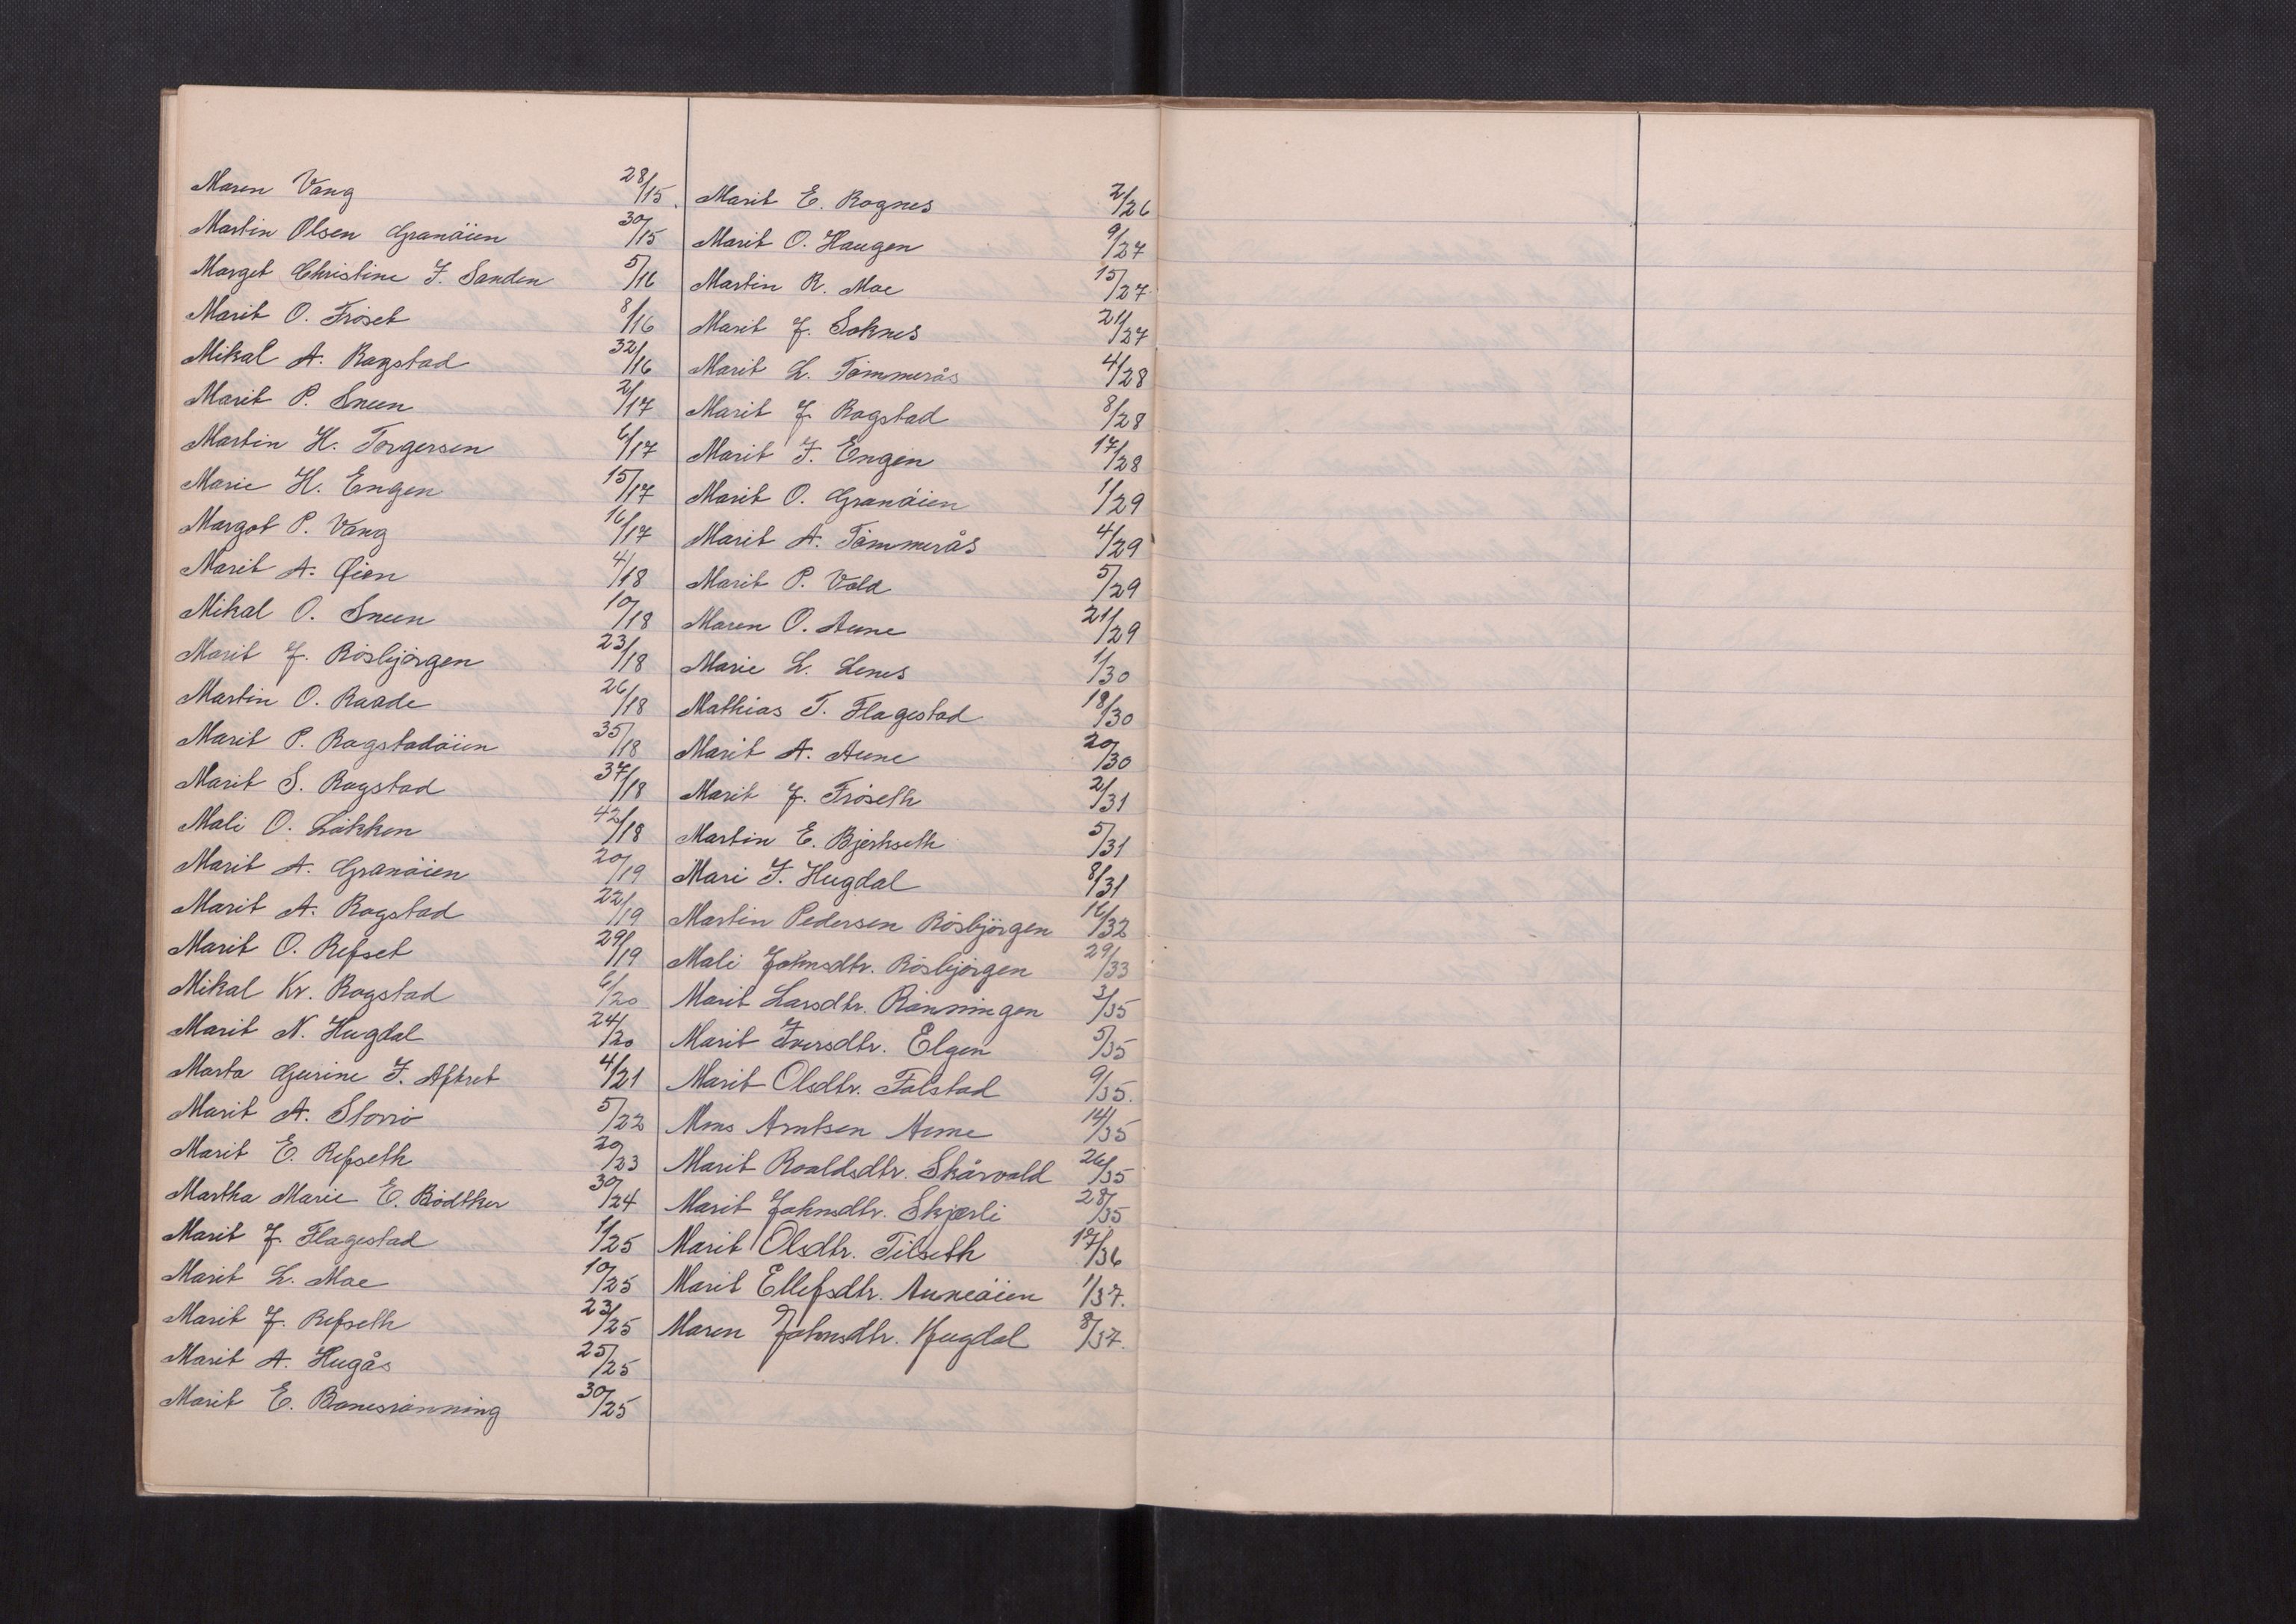 Maren Vang 28/15.
Martin Olsen Granöien 30/15
Marget Christine J. Sanden 5/16
Marit O. Fröset 8/16
Mikal A. Rogstad 32/16
Marit P. Sneen 2/17
Martin H. Torgersen 6/17
Marie H. Engen 15/17
Margot P. Vang 16/17
Marit A. Öien 4/18
Mikal O. Sneen 10/18
Marit J. Rösbjörgen 23/18
Martin O. Raade 26/18
Marit P. Rogstadöien 35/18
Marit S. Rogstad 37/18
Mali O. Lökken 42/18
Marit A. Granöien 20/19
Marit A. Rogstad 22/19
Marit O. Refset 29/19
Mikal Kr. Rogstad 6/20
Marit N. Hugdal 24/20
Marta Gurine J. Aftret 4/21
Marit A. Storrö 5/22
Marit E. Refseth 20/23
Martha Marie E. Bödtker 30/24
Marit J. Flagestad 1/25
Marit L. Moe 10/25
Marit J. Refseth 23/25
Marit A. Hugås 25/25
Marit E. Bonesrönning 30/25
Marit E. Rognes 2/26
Marit O. Haugen 9/27
Martin R. Moe 15/27
Marit J. Soknes 21/27
Marit L. Tömmerås 4/28
Marit J. Rogstad 8/28
Marit J. Engen 17/28
Marit O. Granöien 1/29
Marit A. Tömmerås 4/29
Marit P. Vold 5/29
Maren O. Aune 21/29
Marie L. Lenes 1/30
Mathias T. Flagestad 18/30
Marit A. Aune 20/30
Marit J. Fröseth 2/31
Martin E. Bjerkseth 5/31
Mari J. Hugdal 8/31
Martin Pedersen Rösbjörgen 16/32
Mali Johnsdtr. Rösbjörgen 29/33
Marit Larsdtr. Rönningen 3/35
Marit Iversdtr. Elgen 5/35
Marit Olsdtr. Folstad 9/35.
Mons Arntsen Aune 14/35
Marit Roaldsdtr. Skårvold 26/35
Marit Johnsdtr. Skjerli 28/35
Marit Olsdtr. Tilseth 17/36
Marit Ellefsdtr. Auneöien 1/37.
Maren Johnsdtr. Hugdal 8/37.